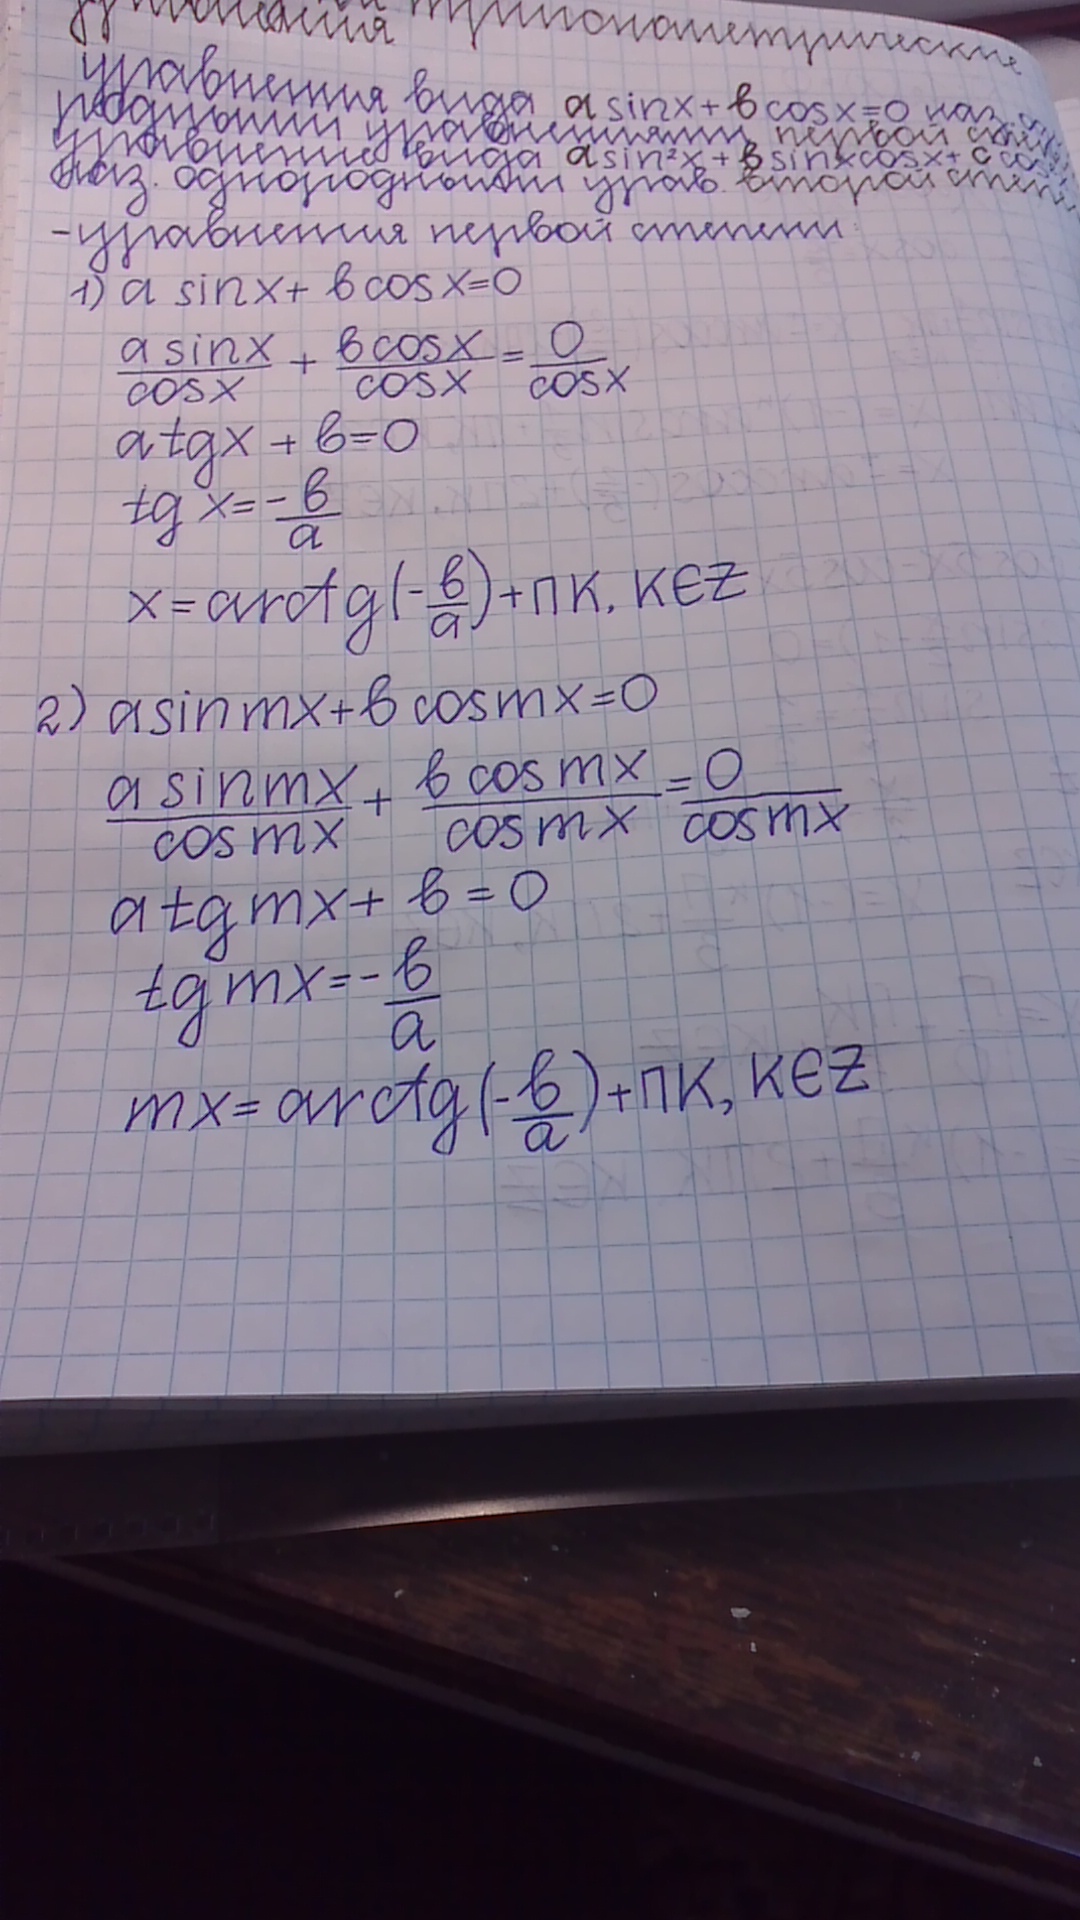 тригонометрические
уравнения
уравнения вида a sinx + b cosx = 0 наз.
родными уравнениями первой
уравнение вида a sin²x + b sinx cosx + c cos
наз. однородными урав. второй степ
- уравнения первой степени:
1) a sinx + b cosx = 0
a sinx / cosx + b cosx / cosx = 0 / cosx
a tgx + b = 0
tg x = - b/a
x = arctg(- b/a) + ПК, К∈Z
2) a sin mx + b cos mx = 0
a sin mx / cos mx + b cos mx / cos mx = 0 / cos mx
a tg mx + b = 0
tg mx = - b/a
mx = arctg(- b/a) + ПК, К∈Z